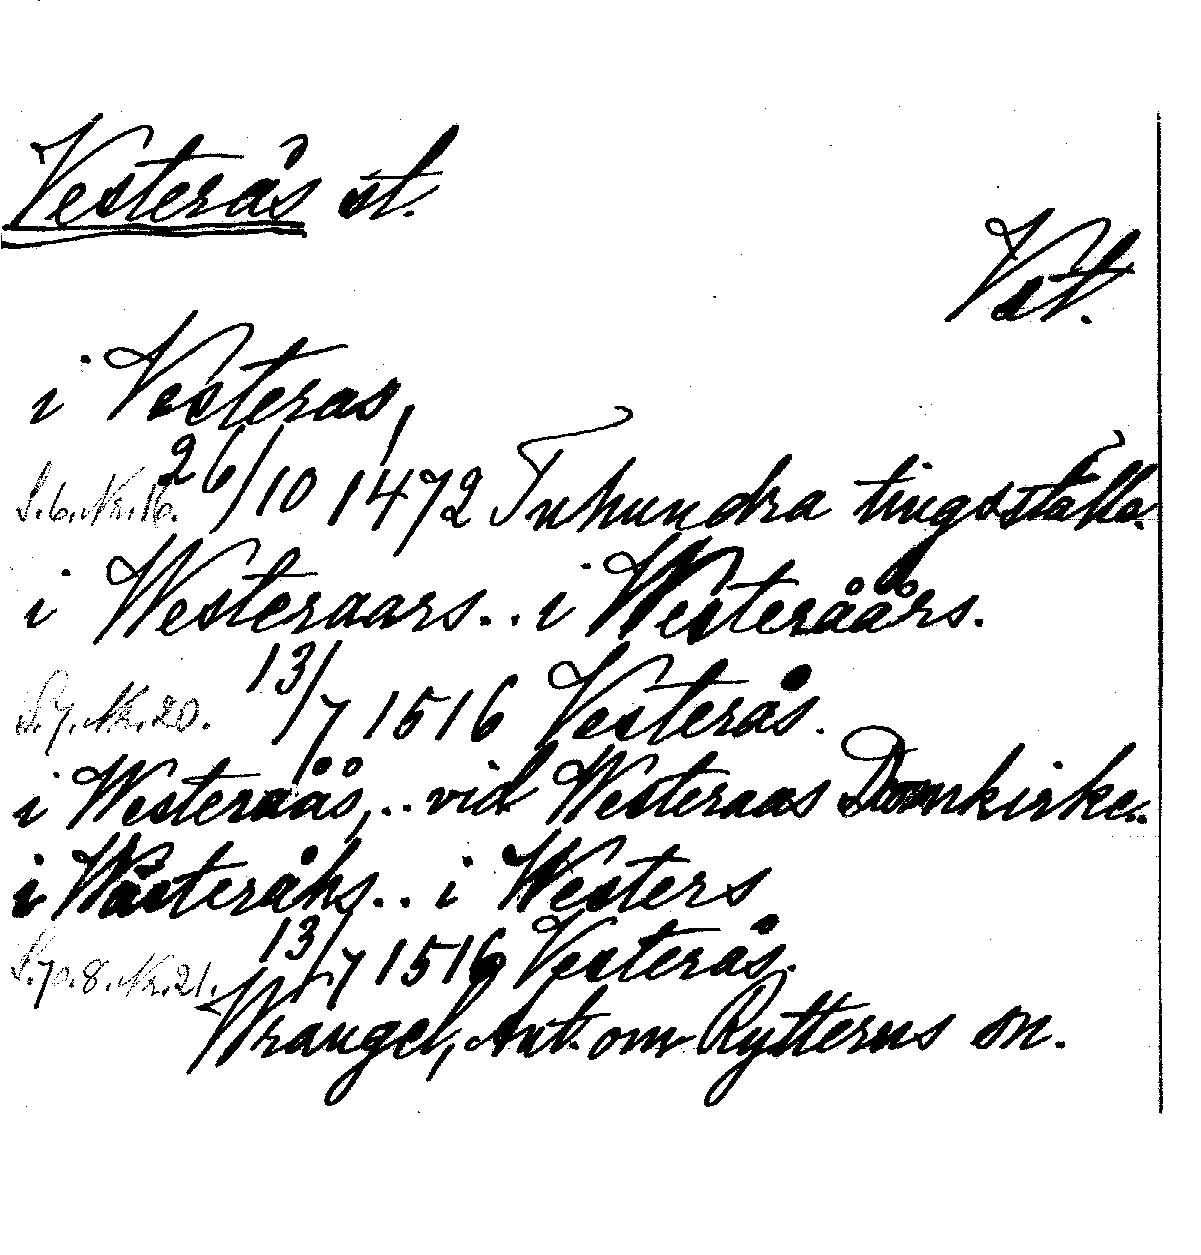 Vesterås st.
Vst.
i Vesteras,
S. 6. Nr. 16. 26/10 1472 Tuhundra tingsställe.
i Westeraars.. i Westeråårs.
S. 7. Nr. 20. 13/7 1516 Vesterås.
i Westeraås,.. vid Westeraas Domkirke..
i Wästeråhs.. i Westers
S. 7o. 8. Nr. 21. 13/7 1516 Vesterås.
Wrangel, Ant. om Rytterns sn.